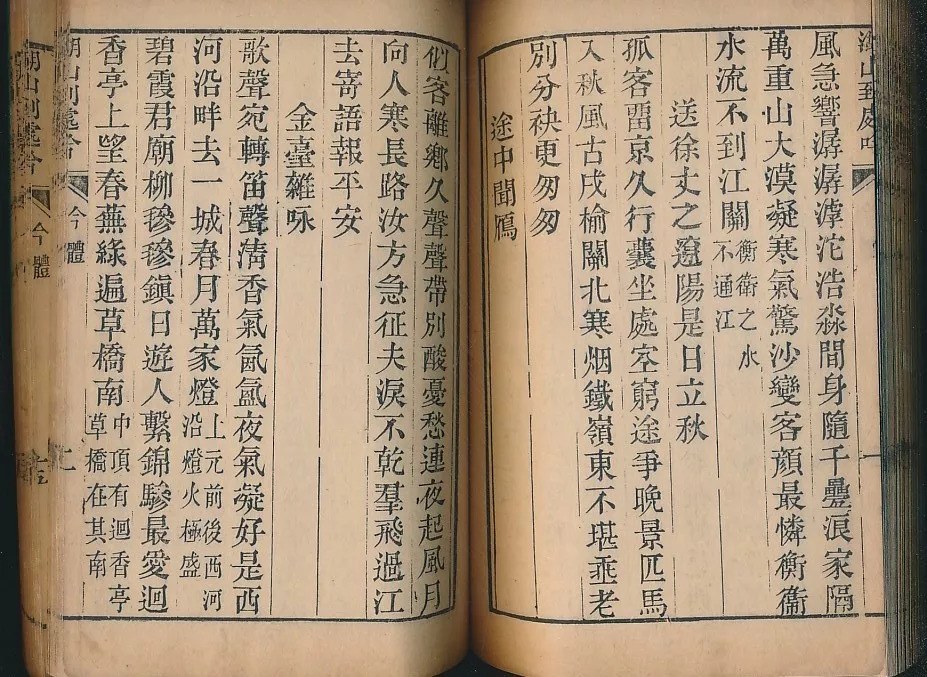 湖山到處吟
風急響潺潺滹沱浩淼間身隨千疊浪家隔
萬重山大漠凝寒氣驚沙變客顏最憐衡衞
水流不到江關衡衞之水
不通江
送徐丈之遼陽是日立秋
孤客畱京久行囊坐處空窮途爭晚景匹馬
入秋風古戍榆關北寒烟鐵嶺東不堪垂老
別分袂更匆匆
途中聞鴈
似客離鄉久聲聲帶別酸憂愁連夜起風月
向人寒長路汝方急征夫淚不乾羣飛過江
去寄語報平安
金臺雜咏
歌聲宛轉笛聲淸香氣氤氳夜氣凝好是西
河沿畔去一城春月萬家燈上元前後西河
沿燈火極盛
碧霞君廟柳毿毿鎮日遊人繫錦驂最愛迴
香亭上望春蕪綠遍草橋南中頂有迴香亭
草橋在其南
湖山到處吟 今體
湖山到處吟 今體